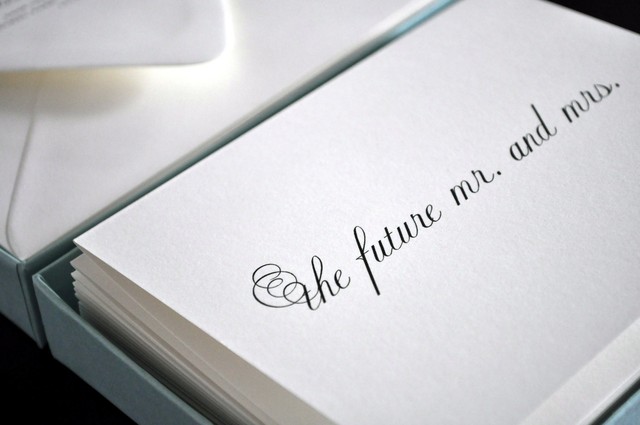 the future mr. and mrs.